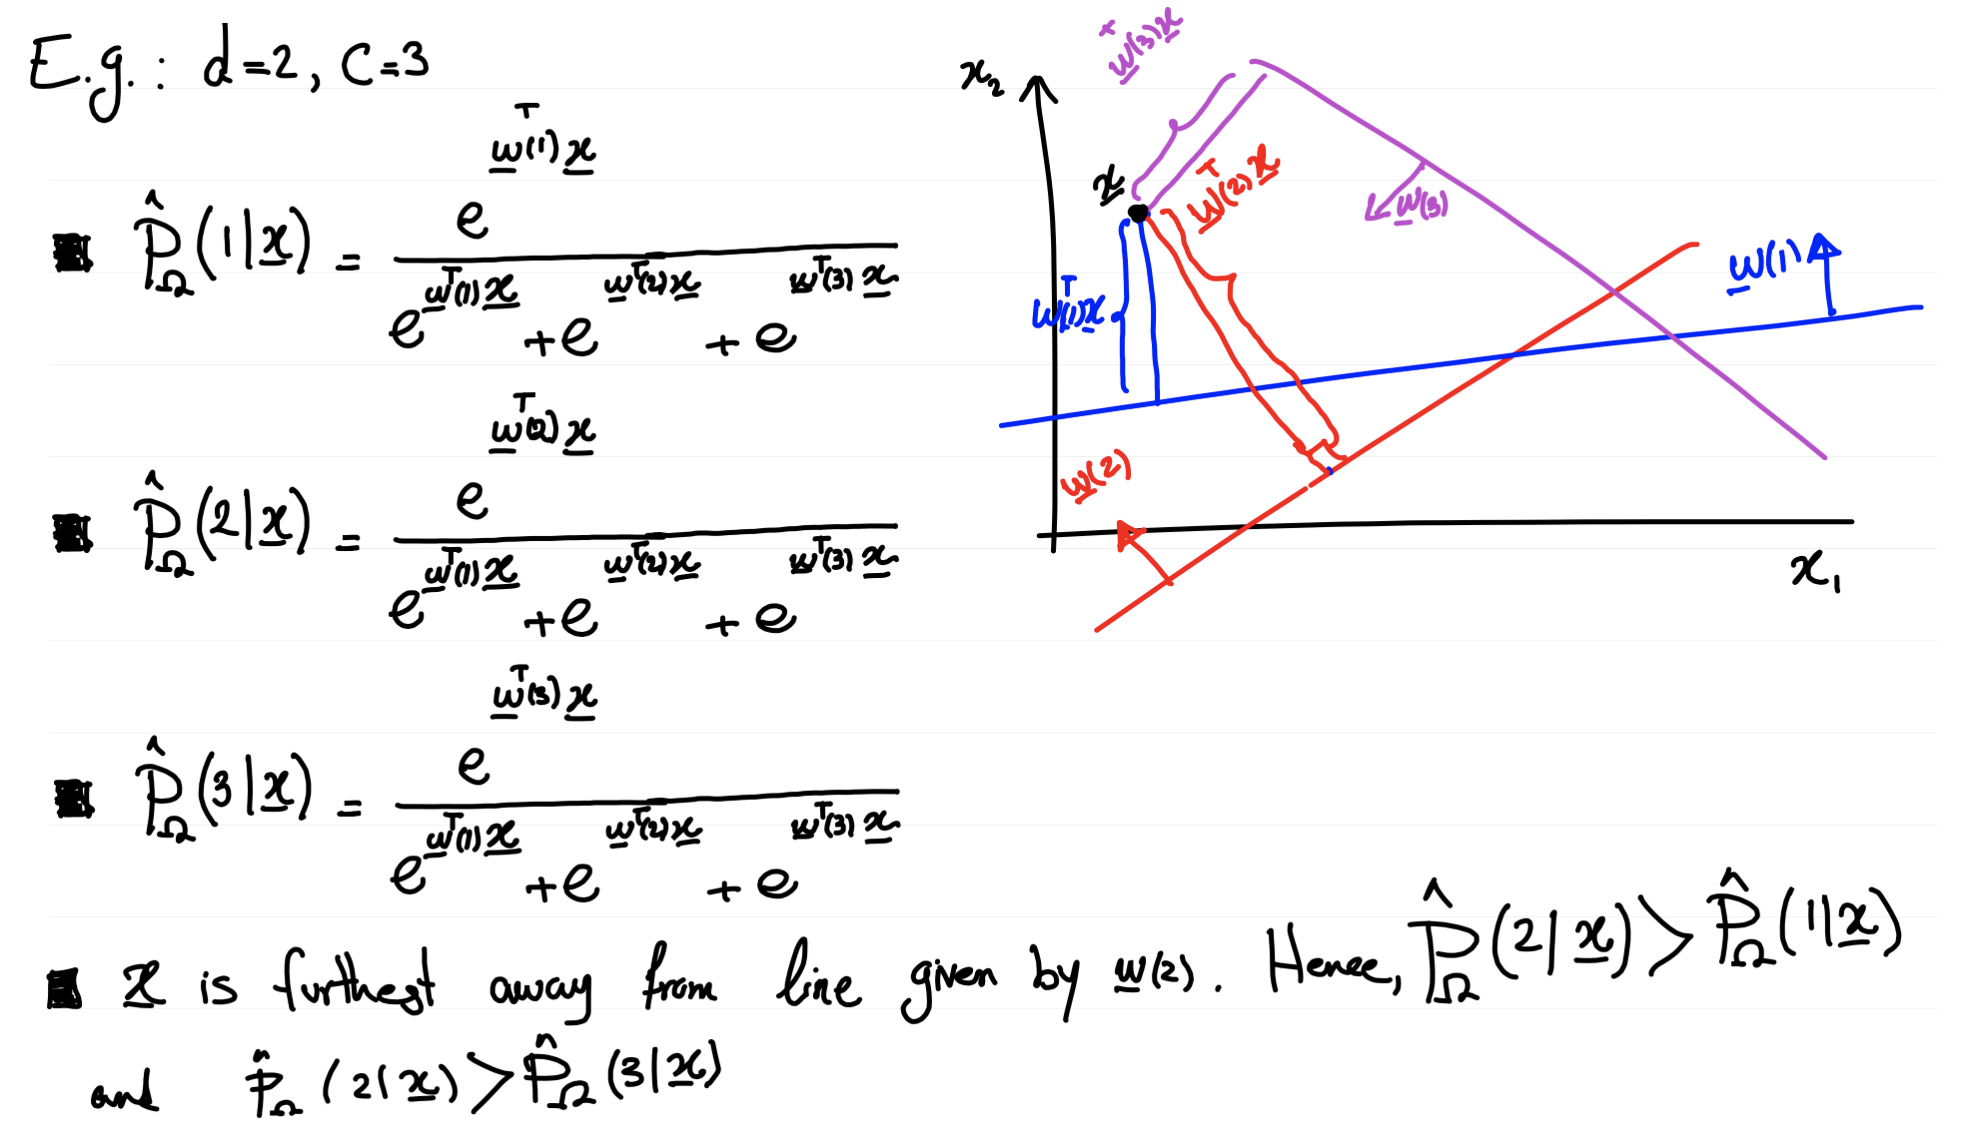 E.g.: d=2, C=3
P̂_Ω(1|x̲) = e^{w̲ᵀ(1)x̲} / (e^{w̲ᵀ(1)x̲} + e^{w̲ᵀ(2)x̲} + e^{w̲ᵀ(3)x̲})
P̂_Ω(2|x̲) = e^{w̲ᵀ(2)x̲} / (e^{w̲ᵀ(1)x̲} + e^{w̲ᵀ(2)x̲} + e^{w̲ᵀ(3)x̲})
P̂_Ω(3|x̲) = e^{w̲ᵀ(3)x̲} / (e^{w̲ᵀ(1)x̲} + e^{w̲ᵀ(2)x̲} + e^{w̲ᵀ(3)x̲})
w̲ᵀ(3)x̲
x₂
x̲
w̲ᵀ(2)x̲
w̲(3)
w̲(1)
w̲ᵀ(1)x̲
w̲(2)
x₁
x̲ is furthest away from line given by w̲(2). Hence, P̂_Ω(2|x̲) > P̂_Ω(1|x̲)
and P̂_Ω(2|x̲) > P̂_Ω(3|x̲)